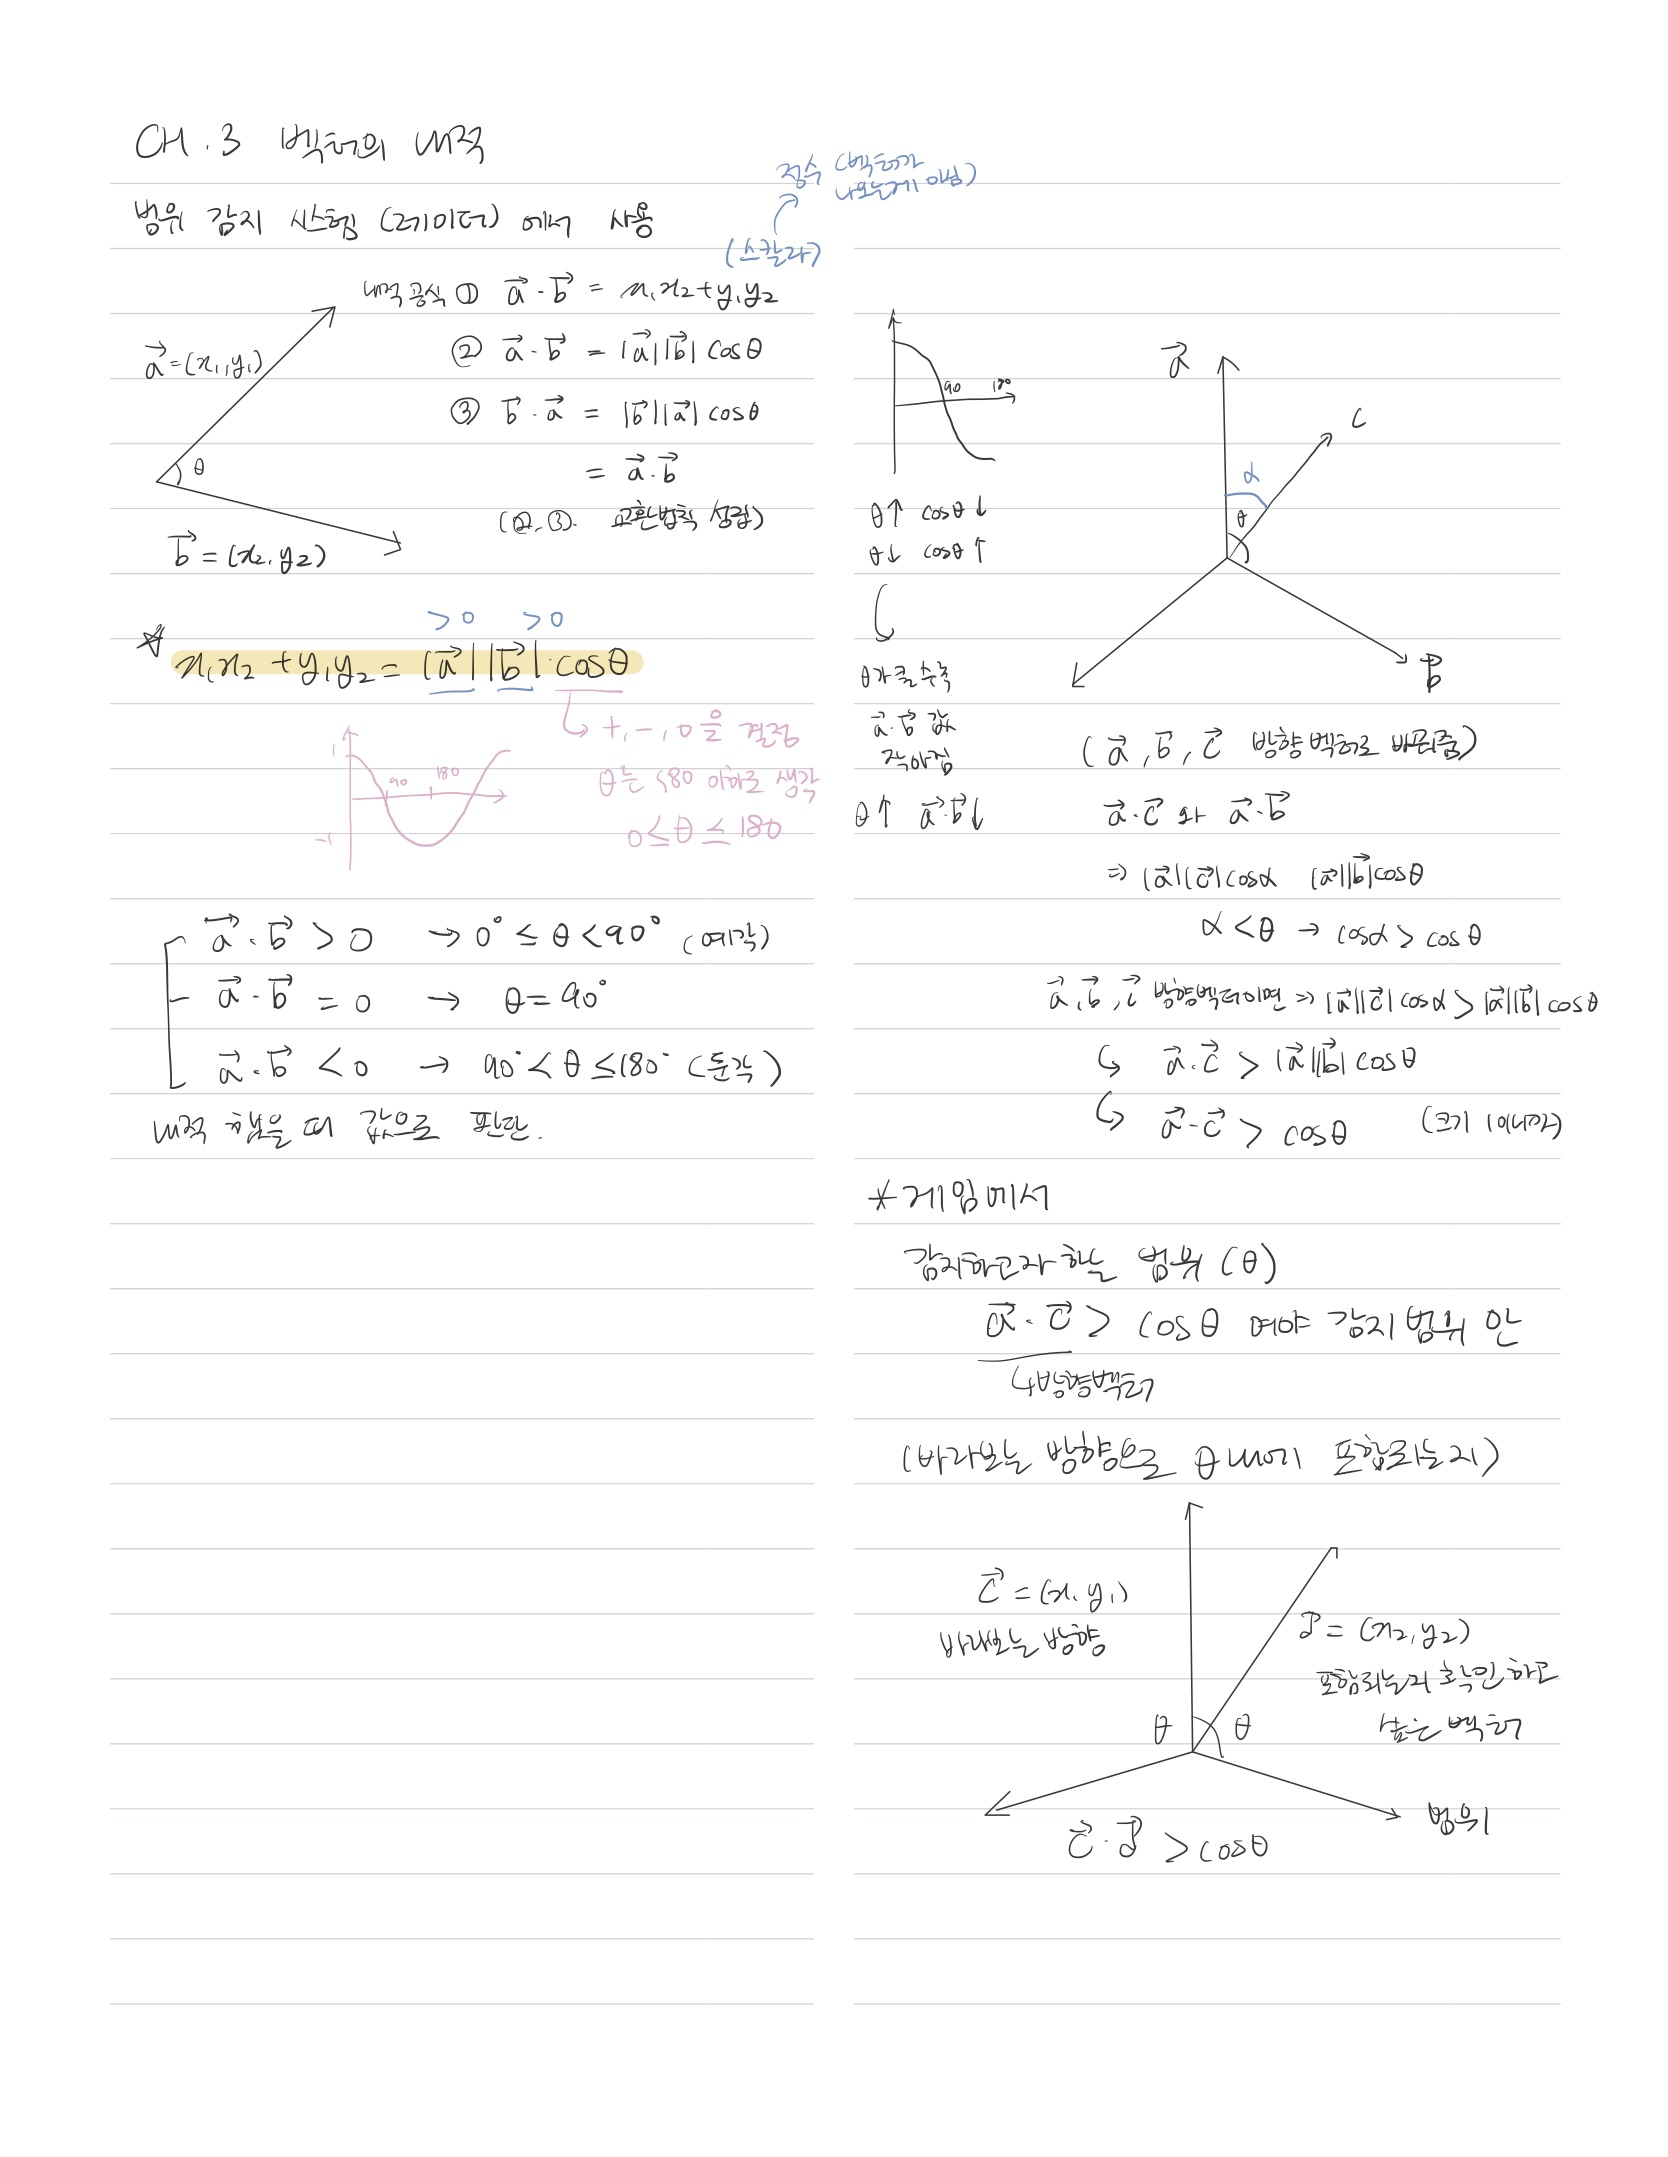 CH.3 벡터의 내적
범위 감지 시스템 (레이더) 에서 사용
정수 (벡터가
나오는게 아님)
(스칼라)
내적 공식 ① a⃗·b⃗ = x₁x₂+y₁y₂
② a⃗·b⃗ = |a⃗||b⃗| cosθ
③ b⃗·a⃗ = |b⃗||a⃗| cosθ
= a⃗·b⃗
(②,③. 교환법칙 성립)
a⃗=(x₁,y₁)
θ
b⃗=(x₂,y₂)
>0 >0
☆ x₁x₂+y₁y₂ = |a⃗||b⃗|·cosθ
↳ +,-,0을 결정
θ는 180 이하로 생각
0≤θ≤180
1
90 180
-1
a⃗·b⃗ > 0 → 0°≤θ<90° (예각)
a⃗·b⃗ = 0 → θ=90°
a⃗·b⃗ < 0 → 90°<θ≤180° (둔각)
내적 했을 때 값으로 판단.
90 180
θ↑ cosθ↓
θ↓ cosθ↑
θ가 클수록
a⃗·b⃗ 값
작아짐
θ↑ a⃗·b⃗↓
a⃗
c
α
θ
b⃗
(a⃗, b⃗, c⃗ 방향벡터로 바꿔줌)
a⃗·c⃗ 와 a⃗·b⃗
⇒ |a⃗||c⃗|cosα |a⃗||b⃗|cosθ
α<θ → cosα > cosθ
a⃗, b⃗, c⃗ 방향벡터이면 ⇒ |a⃗||c⃗|cosα > |a⃗||b⃗|cosθ
↳ a⃗·c⃗ > |a⃗||b⃗|cosθ
↳ a⃗·c⃗ > cosθ (크기 1이니까)
*게임에서
감지하고자 하는 범위 (θ)
a⃗·c⃗ > cosθ 여야 감지범위 안
↳방향벡터
(바라보는 방향으로 θ내에 포함되는지)
c⃗ = (x₁,y₁)
바라보는 방향
P⃗ = (x₂,y₂)
포함되는지 확인하고
싶은 벡터
θ θ
범위
c⃗·P⃗ > cosθ